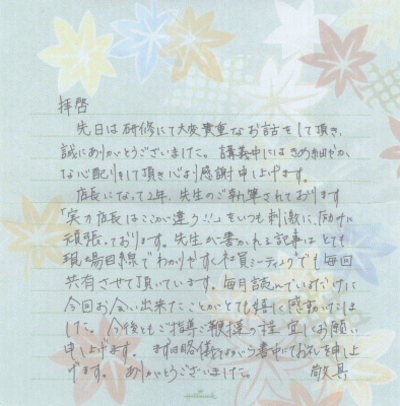 拝啓
先日は研修にて大変貴重なお話をして頂き、
誠にありがとうございました。講義中にはきめ細やか
な心配りをして頂き心より感謝申し上げます。
店長になって2年、先生のご執筆されております
「実力店長はここが違う!!」をいつも刺激に、励みに
頑張っております。先生が書かれる記事はとても
現場目線でわかりやすく社員ミーティングでも毎回
共有させて頂いています。毎月読んでいるだけに
今回お会い出来たことがとても嬉しく感動いたしま
した。今後ともご指導ご鞭撻の程、宜しくお願い
申し上げます。まずは略儀ながら書中にてお礼を申し上
げます。ありがとうございました。 敬具
Hallmark